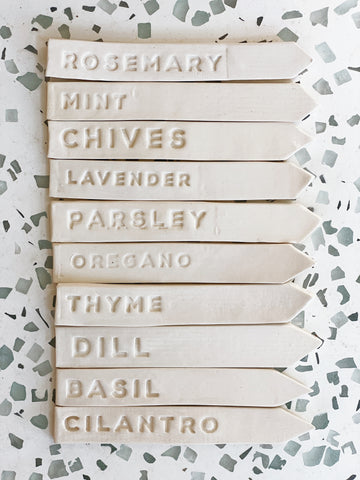 ROSEMARY
MINT
CHIVES
LAVENDER
PARSLEY
OREGANO
THYME
DILL
BASIL
CILANTRO